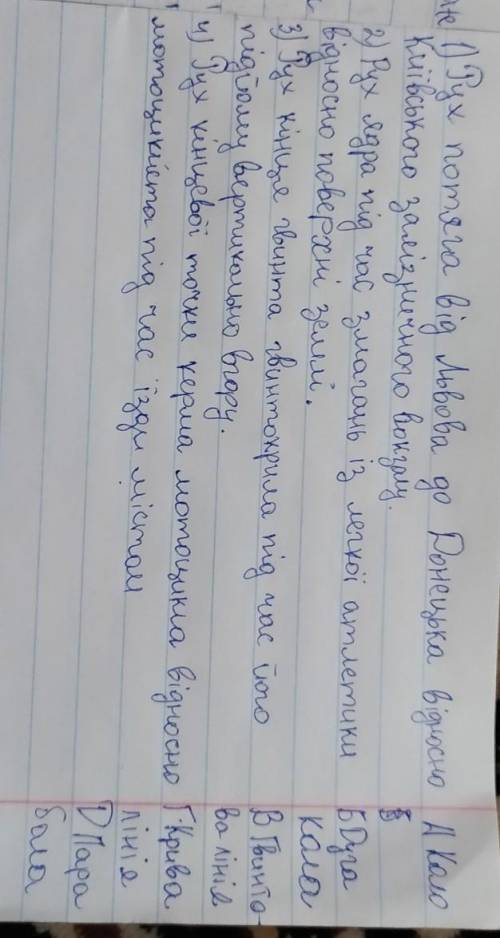 1) Рух потяга від Львова до Донецька відносно
Київського залізничного вокзалу.
2) Рух ядра під час змагань із легкої атлетики
відносно поверхні землі.
3) Рух кінця гвинта гвинтокрила під час його
підйому вертикально вгору.
4) Рух кінцевої точки керма мотоцикла відносно
мотоцикліста під час їзди містом
А Коло
Б Дуга
кола
В Гвинто-
ва лінія
Г. Крива
лінія
Д Пара
бола